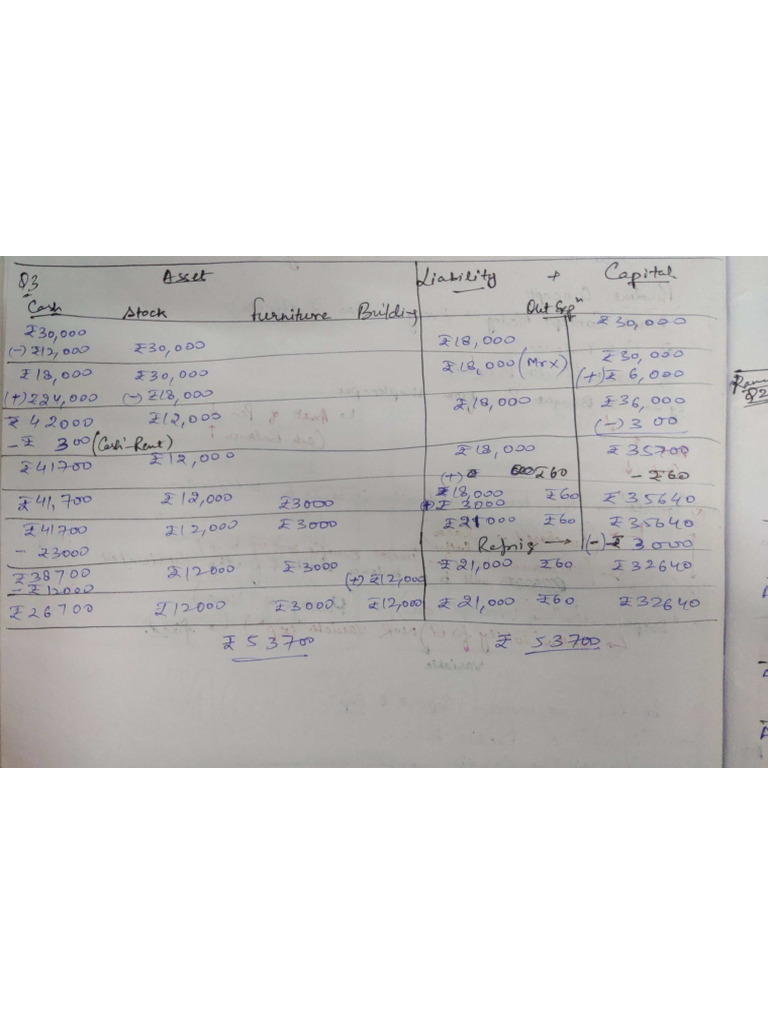 Q3 Asset Liability + Capital
Cash Stock furniture Building Out Expn
₹30,000 ₹30,000
(-) ₹12,000 ₹30,000 ₹18,000
₹18,000 ₹30,000 ₹18,000 (Mr X) ₹30,000
(+) ₹24,000 (-) ₹18,000 (+) ₹6,000
₹42000 ₹12,000 ₹18,000 ₹36,000
- ₹300 (Cash Rent) (-) 300
₹41700 ₹12,000 ₹18,000 ₹35700
(+) ₹60 - ₹60
₹41,700 ₹12,000 ₹3000 ₹18,000 ₹60 ₹35640
(+) ₹3000
₹41700 ₹12,000 ₹3000 ₹21000 ₹60 ₹35640
- ₹3000 Refrig → (-) ₹3000
₹38700 ₹12000 ₹3000 ₹21,000 ₹60 ₹32640
- ₹12000 (+) ₹12,000
₹26700 ₹12000 ₹3000 ₹12,000 ₹21,000 ₹60 ₹32640
₹53700 ₹53700
Q2